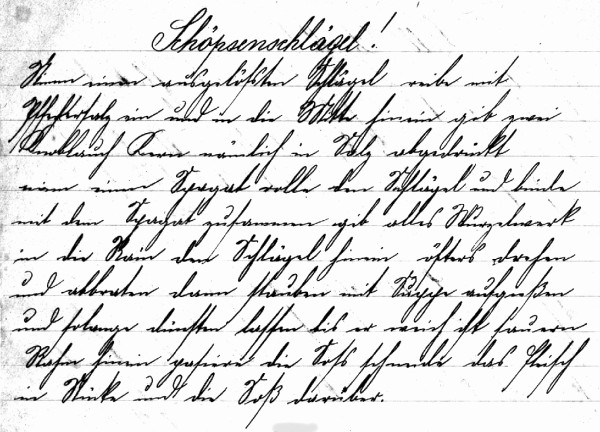 Schöpsenschlägel!
Nimm einen ausgelößten Schlägel reibe mit
Pfeffersalz ein und in die Mitte hinein gib zwei
Knoblauch Kerne nämlich in Salz abgedrückt
nimm einen Spagat rolle den Schlägel und binde
mit dem Spagat zusammen gib alles Wurzelwerk
in die Rain den Schlägel hinein öfters drehen
und abbraten dann stauben mit Suppe aufgießen
und solange dünsten lassen bis er weich ist sauern
Rahm hinein pasiere die Soß schneide das Fleisch
in Stücke und die Soß darüber.